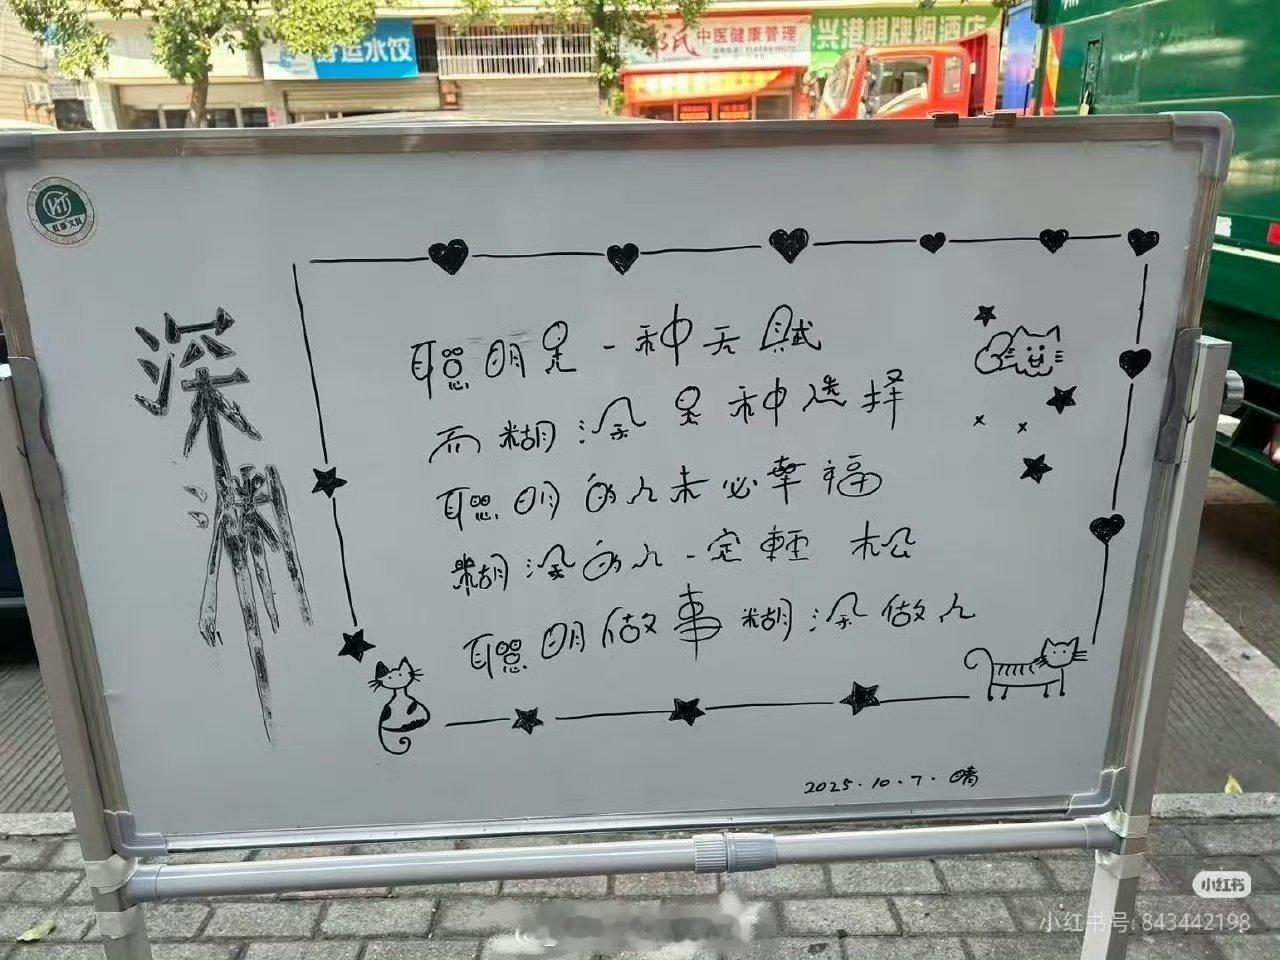 好运水饺
中医健康管理
兴港棋牌烟酒店
深渊
聪明是一种天赋
而糊涂是种选择
聪明的人未必幸福
糊涂的人一定輕松
聪明做事糊涂做人
2025.10.7.晴
小红书
小红书号: 843442198